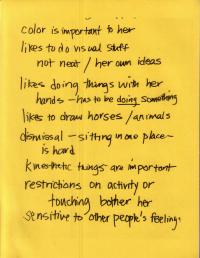 color is important to her
likes to do visual stuff
not neat / her own ideas
likes doing things with her
hands – has to be doing something
likes to draw horses / animals
dismissal – sitting in one place –
is hard
Kinesthetic things are important
restrictions on activity or
touching bother her
sensitive to other people's feelings